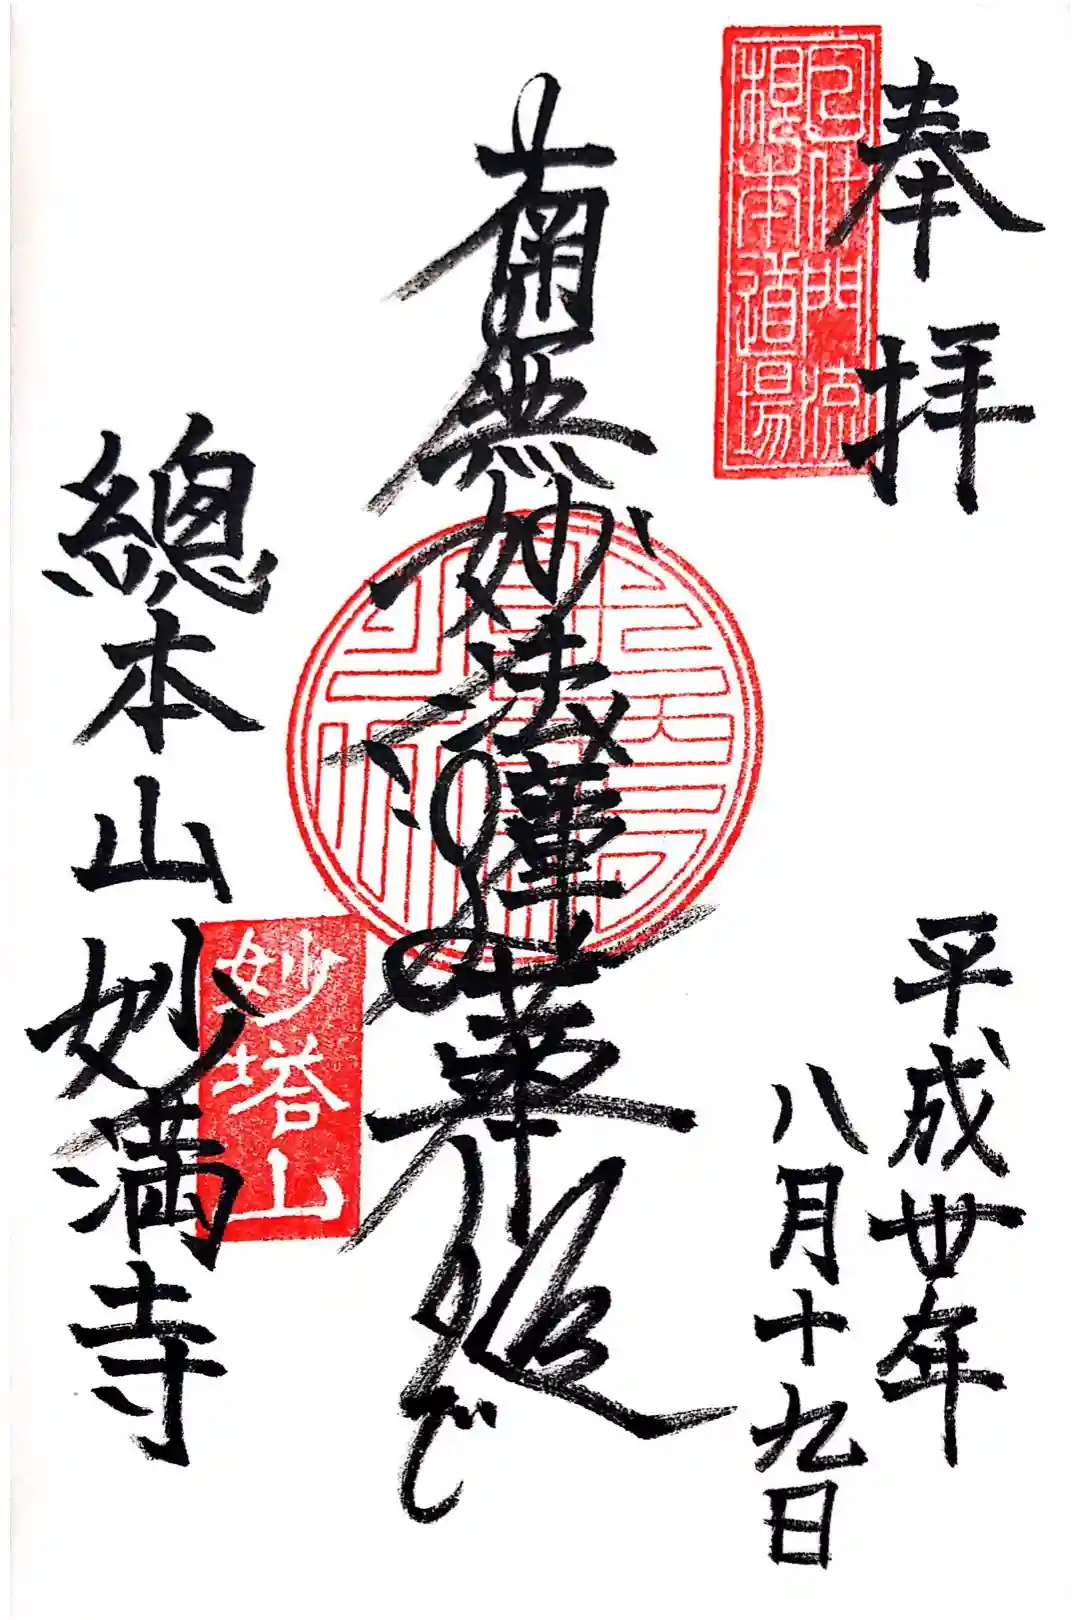 奉拝
什門流
根本道場
平成卅年
八月十九日
南無妙法蓮華経
總本山妙満寺
妙塔山